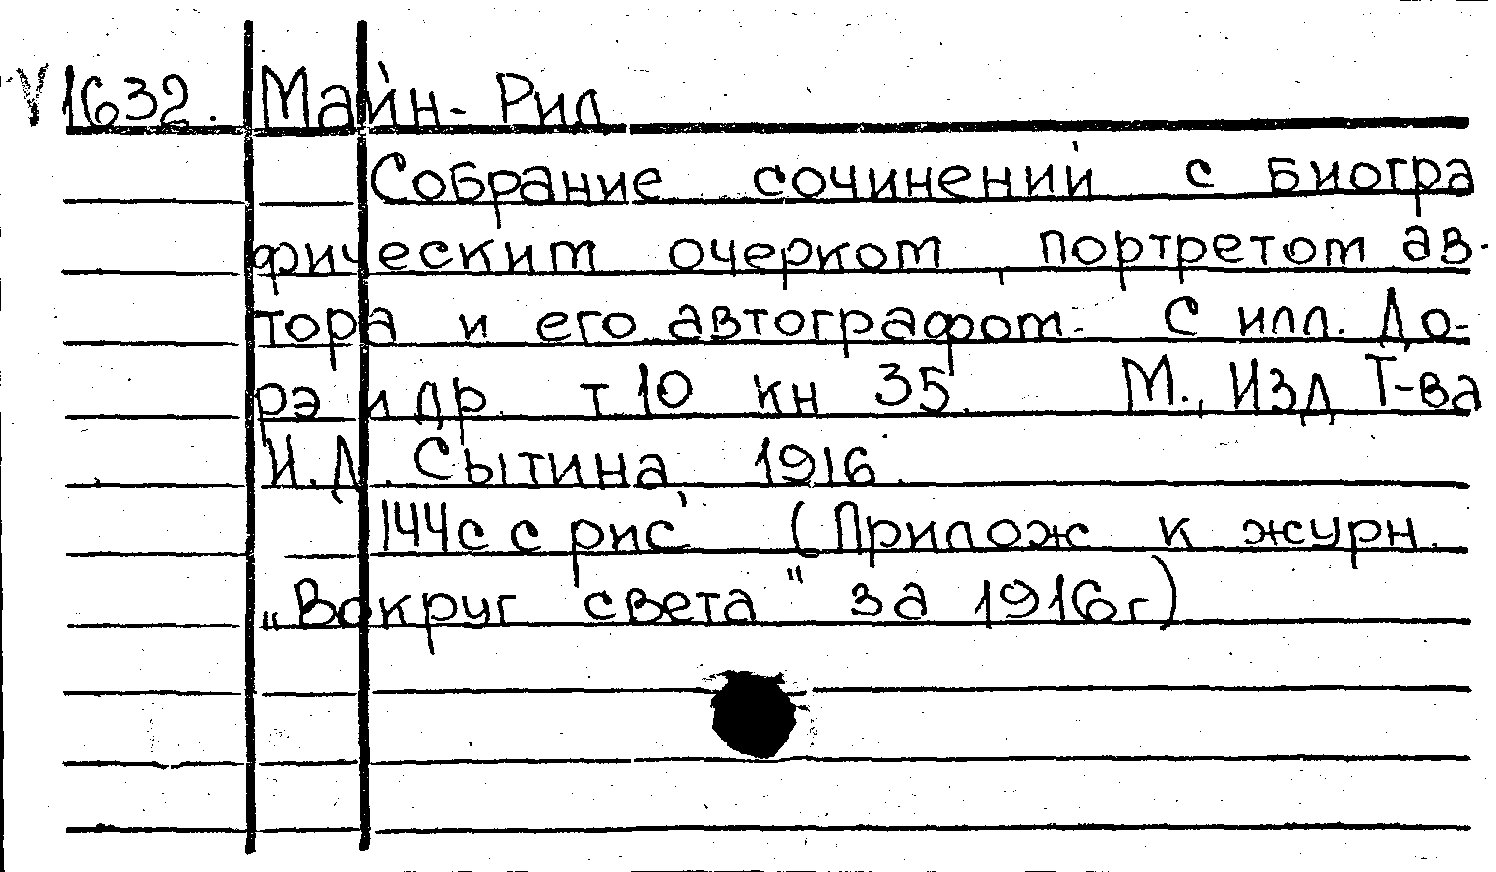 V 1632. Майн-Рид
Собрание сочинений с биогра
фическим очерком, портретом ав-
тора и его автографом. С илл. До-
рэ и др. т 10 кн 35. М., Изд Т-ва
И.Д. Сытина, 1916.
144с с рис. (Прилож к журн.
„Вокруг света" за 1916г)